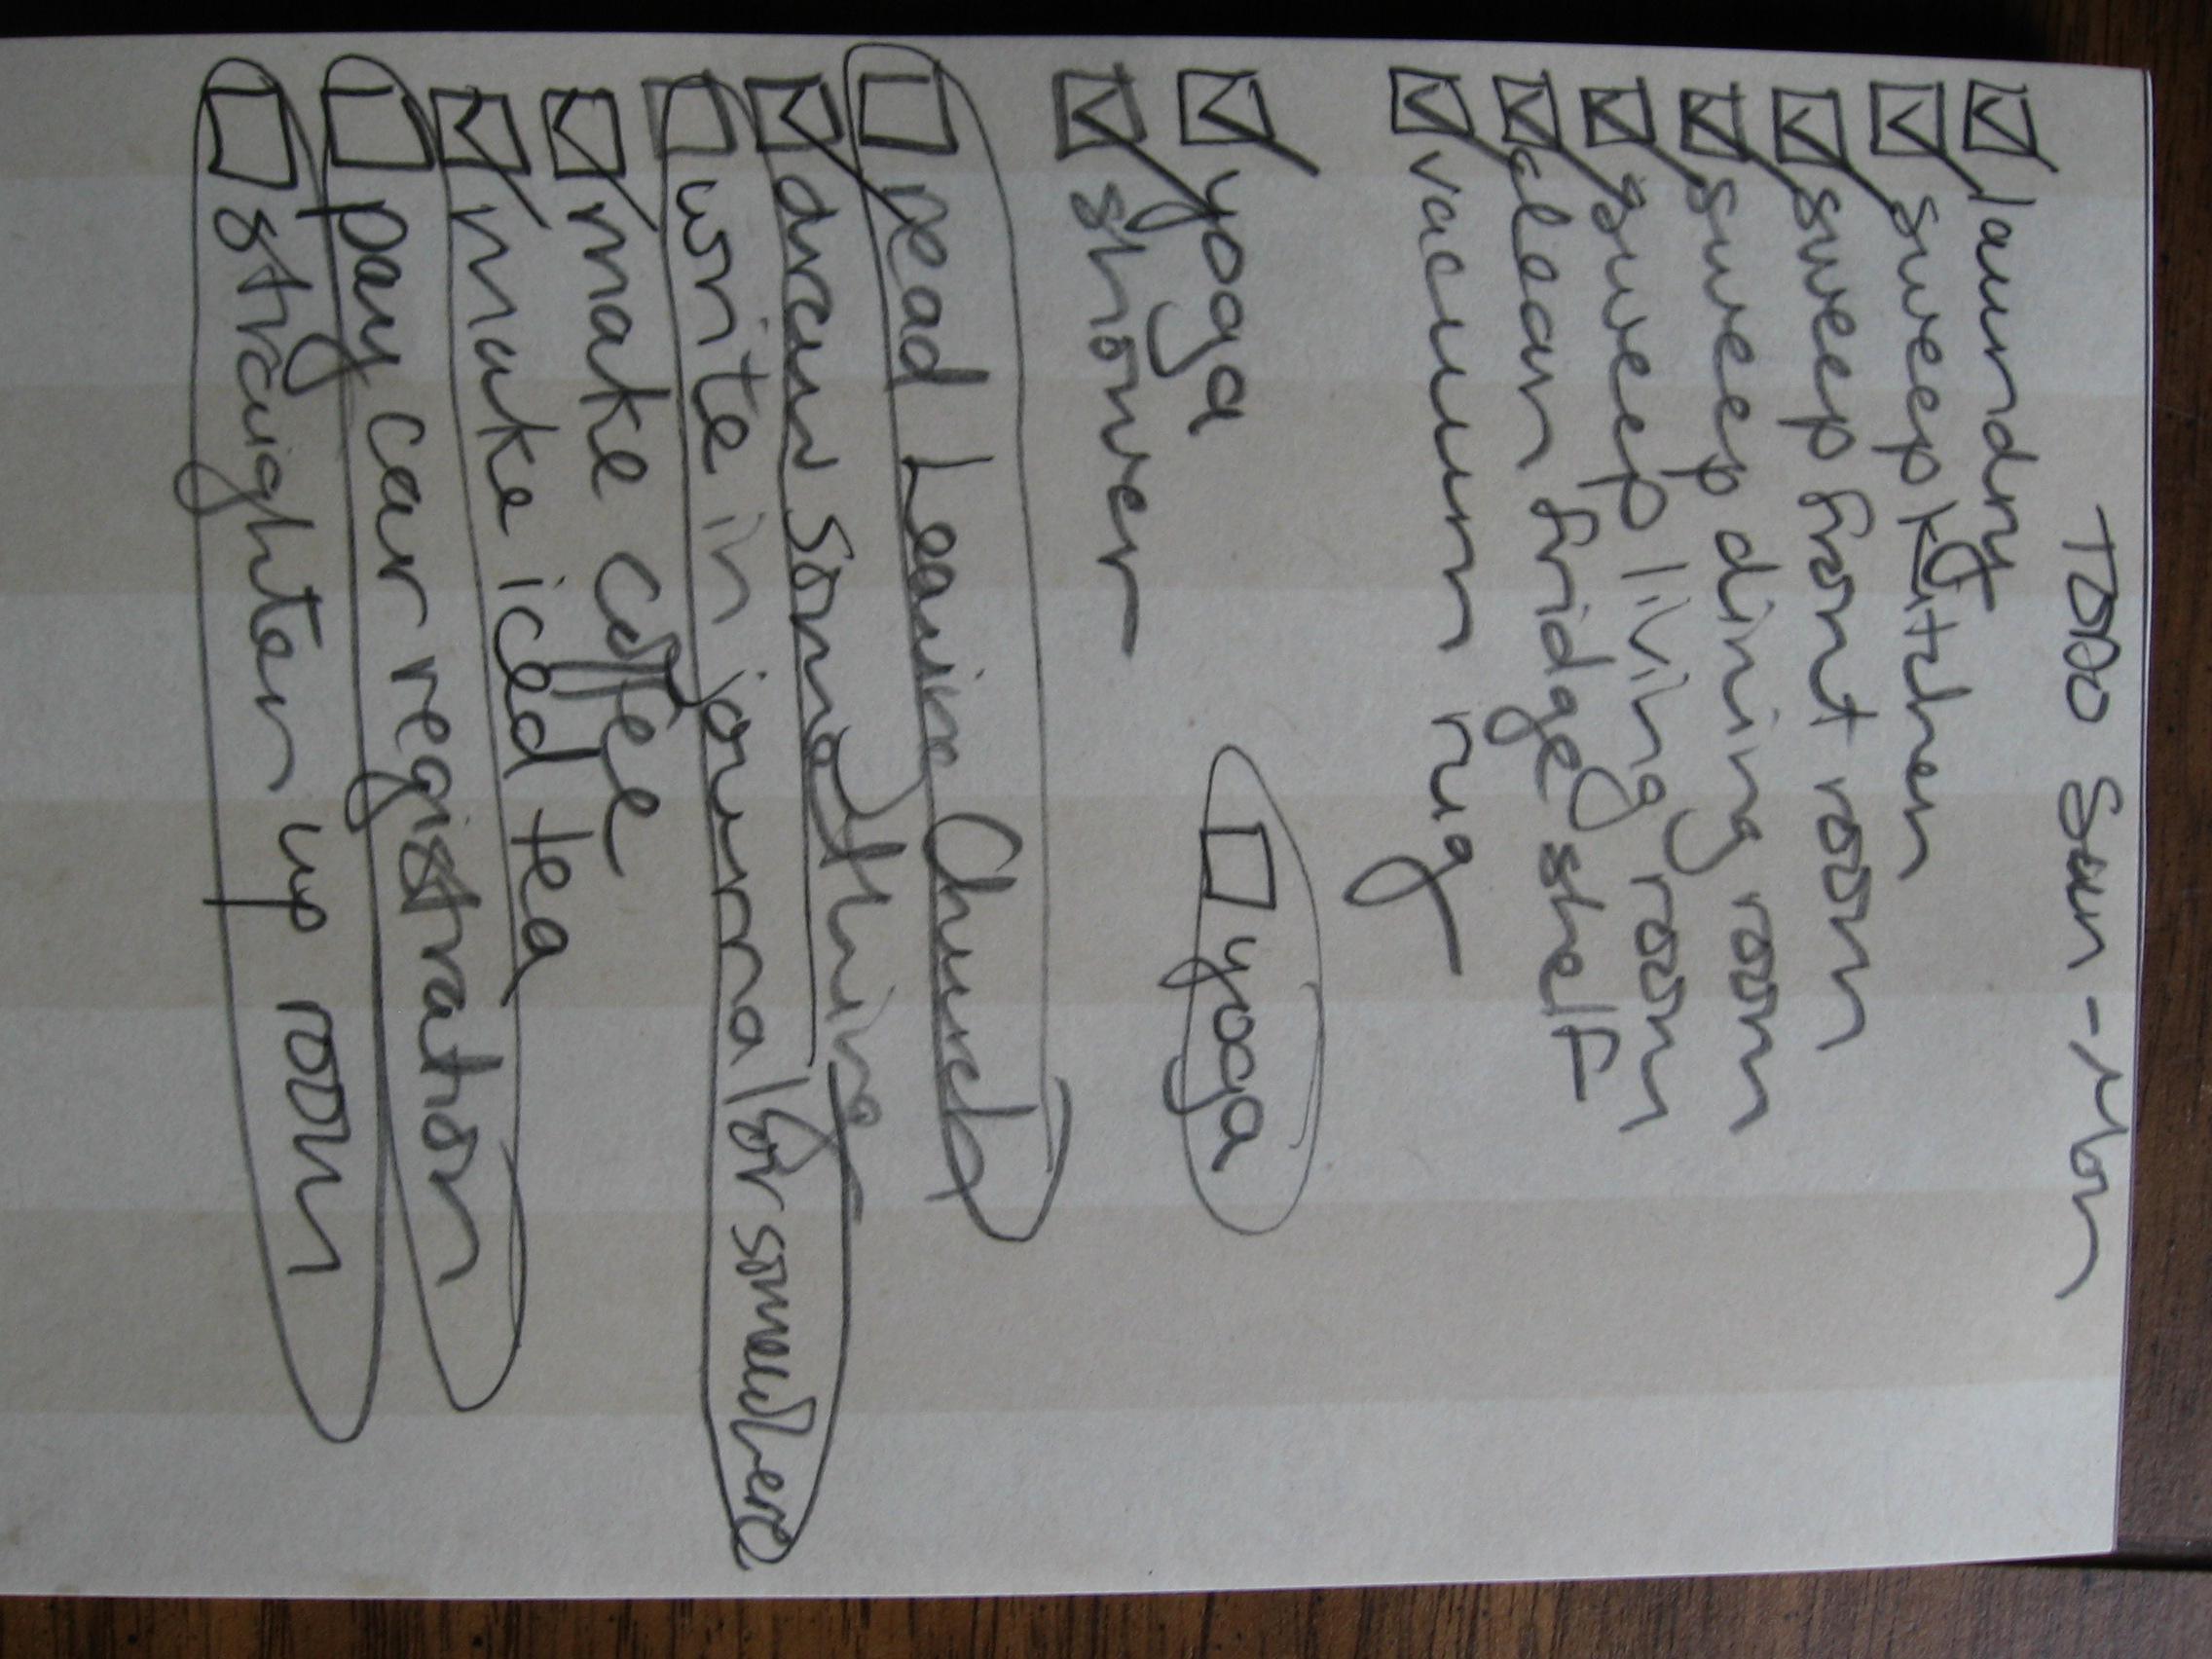 TODO Sun - Mon
laundry
sweep kitchen
sweep front room
sweep dining room
sweep living room
clean fridge shelf
vacuum rug
yoga yoga
shower
read Leaving Church
draw something
write in journal/or somewhere
make coffee
make iced tea
pay car registration
straighten up room